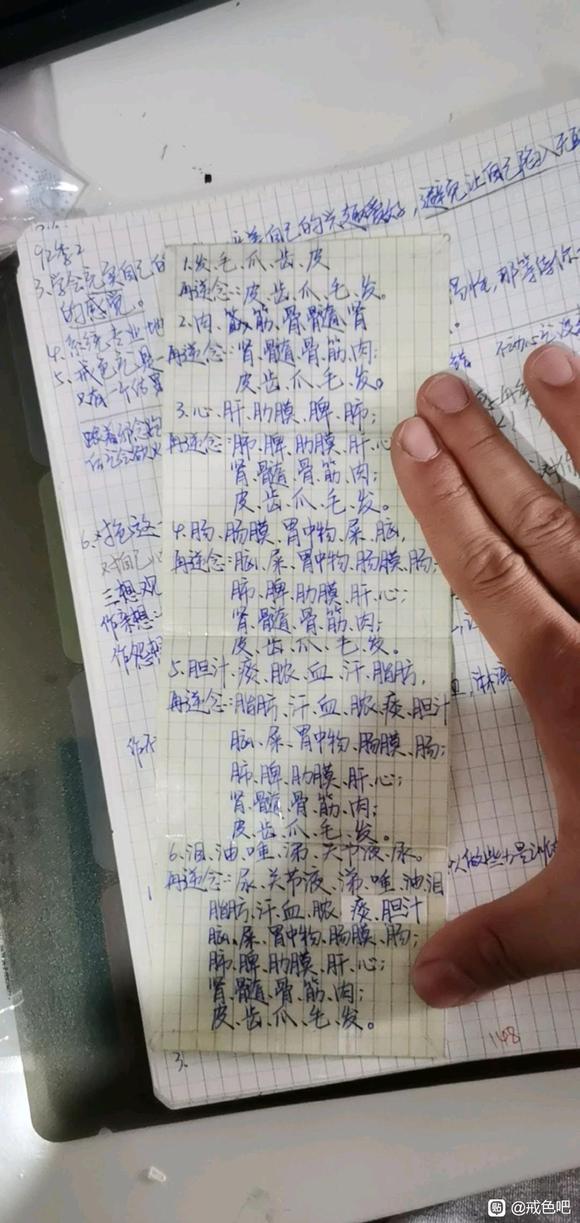 自己的兴趣爱好，避免让自己陷入无聊
纪律2
3.学会完美自己的
的感觉。
4.系统专业地
5.戒色
1.发、毛、爪、齿、皮
再逆念：皮、齿、爪、毛、发。
2.肉、筋、骨、骨髓、肾
再逆念：肾、髓、骨、筋、肉；
皮、齿、爪、毛、发。
3.心、肝、肋膜、脾、肺；
再逆念：肺、脾、肋膜、肝、心
肾、髓、骨、筋、肉；
皮、齿、爪、毛、发。
4.肠、肠膜、胃中物、屎、脑，
再逆念：脑、屎、胃中物、肠膜、肠
肺、脾、肋膜、肝、心；
肾、髓、骨、筋、肉；
皮、齿、爪、毛、发。
5.胆汁、痰、脓、血、汗、脂肪，
再逆念：脂肪、汗、血、脓、痰、胆汁
脑、屎、胃中物、肠膜、肠；
肺、脾、肋膜、肝、心；
肾、髓、骨、筋、肉；
皮、齿、爪、毛、发。
6.泪、油、唾、涕、关节液、尿。
再逆念：尿、关节液、涕、唾、油、泪
脂肪、汗、血、脓、痰、胆汁
脑、屎、胃中物、肠膜、肠；
肺、脾、肋膜、肝、心；
肾、髓、骨、筋、肉；
皮、齿、爪、毛、发。
3.
148
贴 @戒色吧